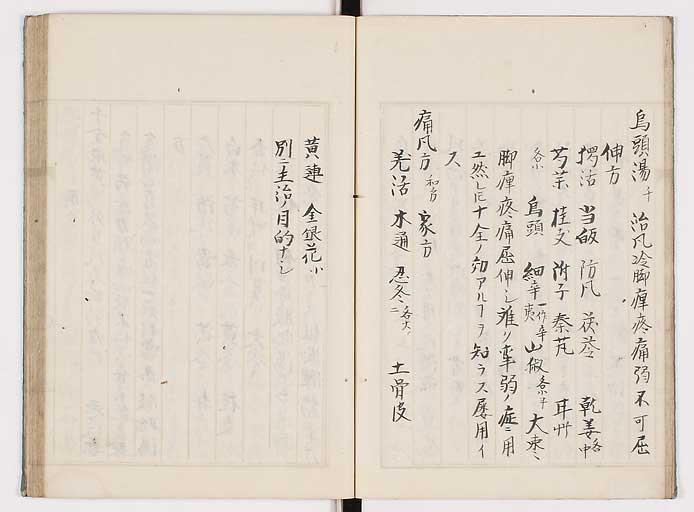 烏頭湯 千 治風冷脚痺疼痛弱不可屈
伸方
独活 当皈 防風 茯苓 乾姜 各中
芍薬 桂支 附子 秦芃 甘艸
各小 烏頭 細辛 一作辛夷 山椒 各小半 大棗
脚痺疼痛屈伸シ難ク攣弱ノ症ニ用
ヱ然レ𪜈十全ノ効アルヿヲ知ラス屡用イ
ス
痛風方 和方 家方
羌活 木通 忍冬 各大 土骨皮
黄連 金銀花 小
別ニ主治ノ目的ナシ